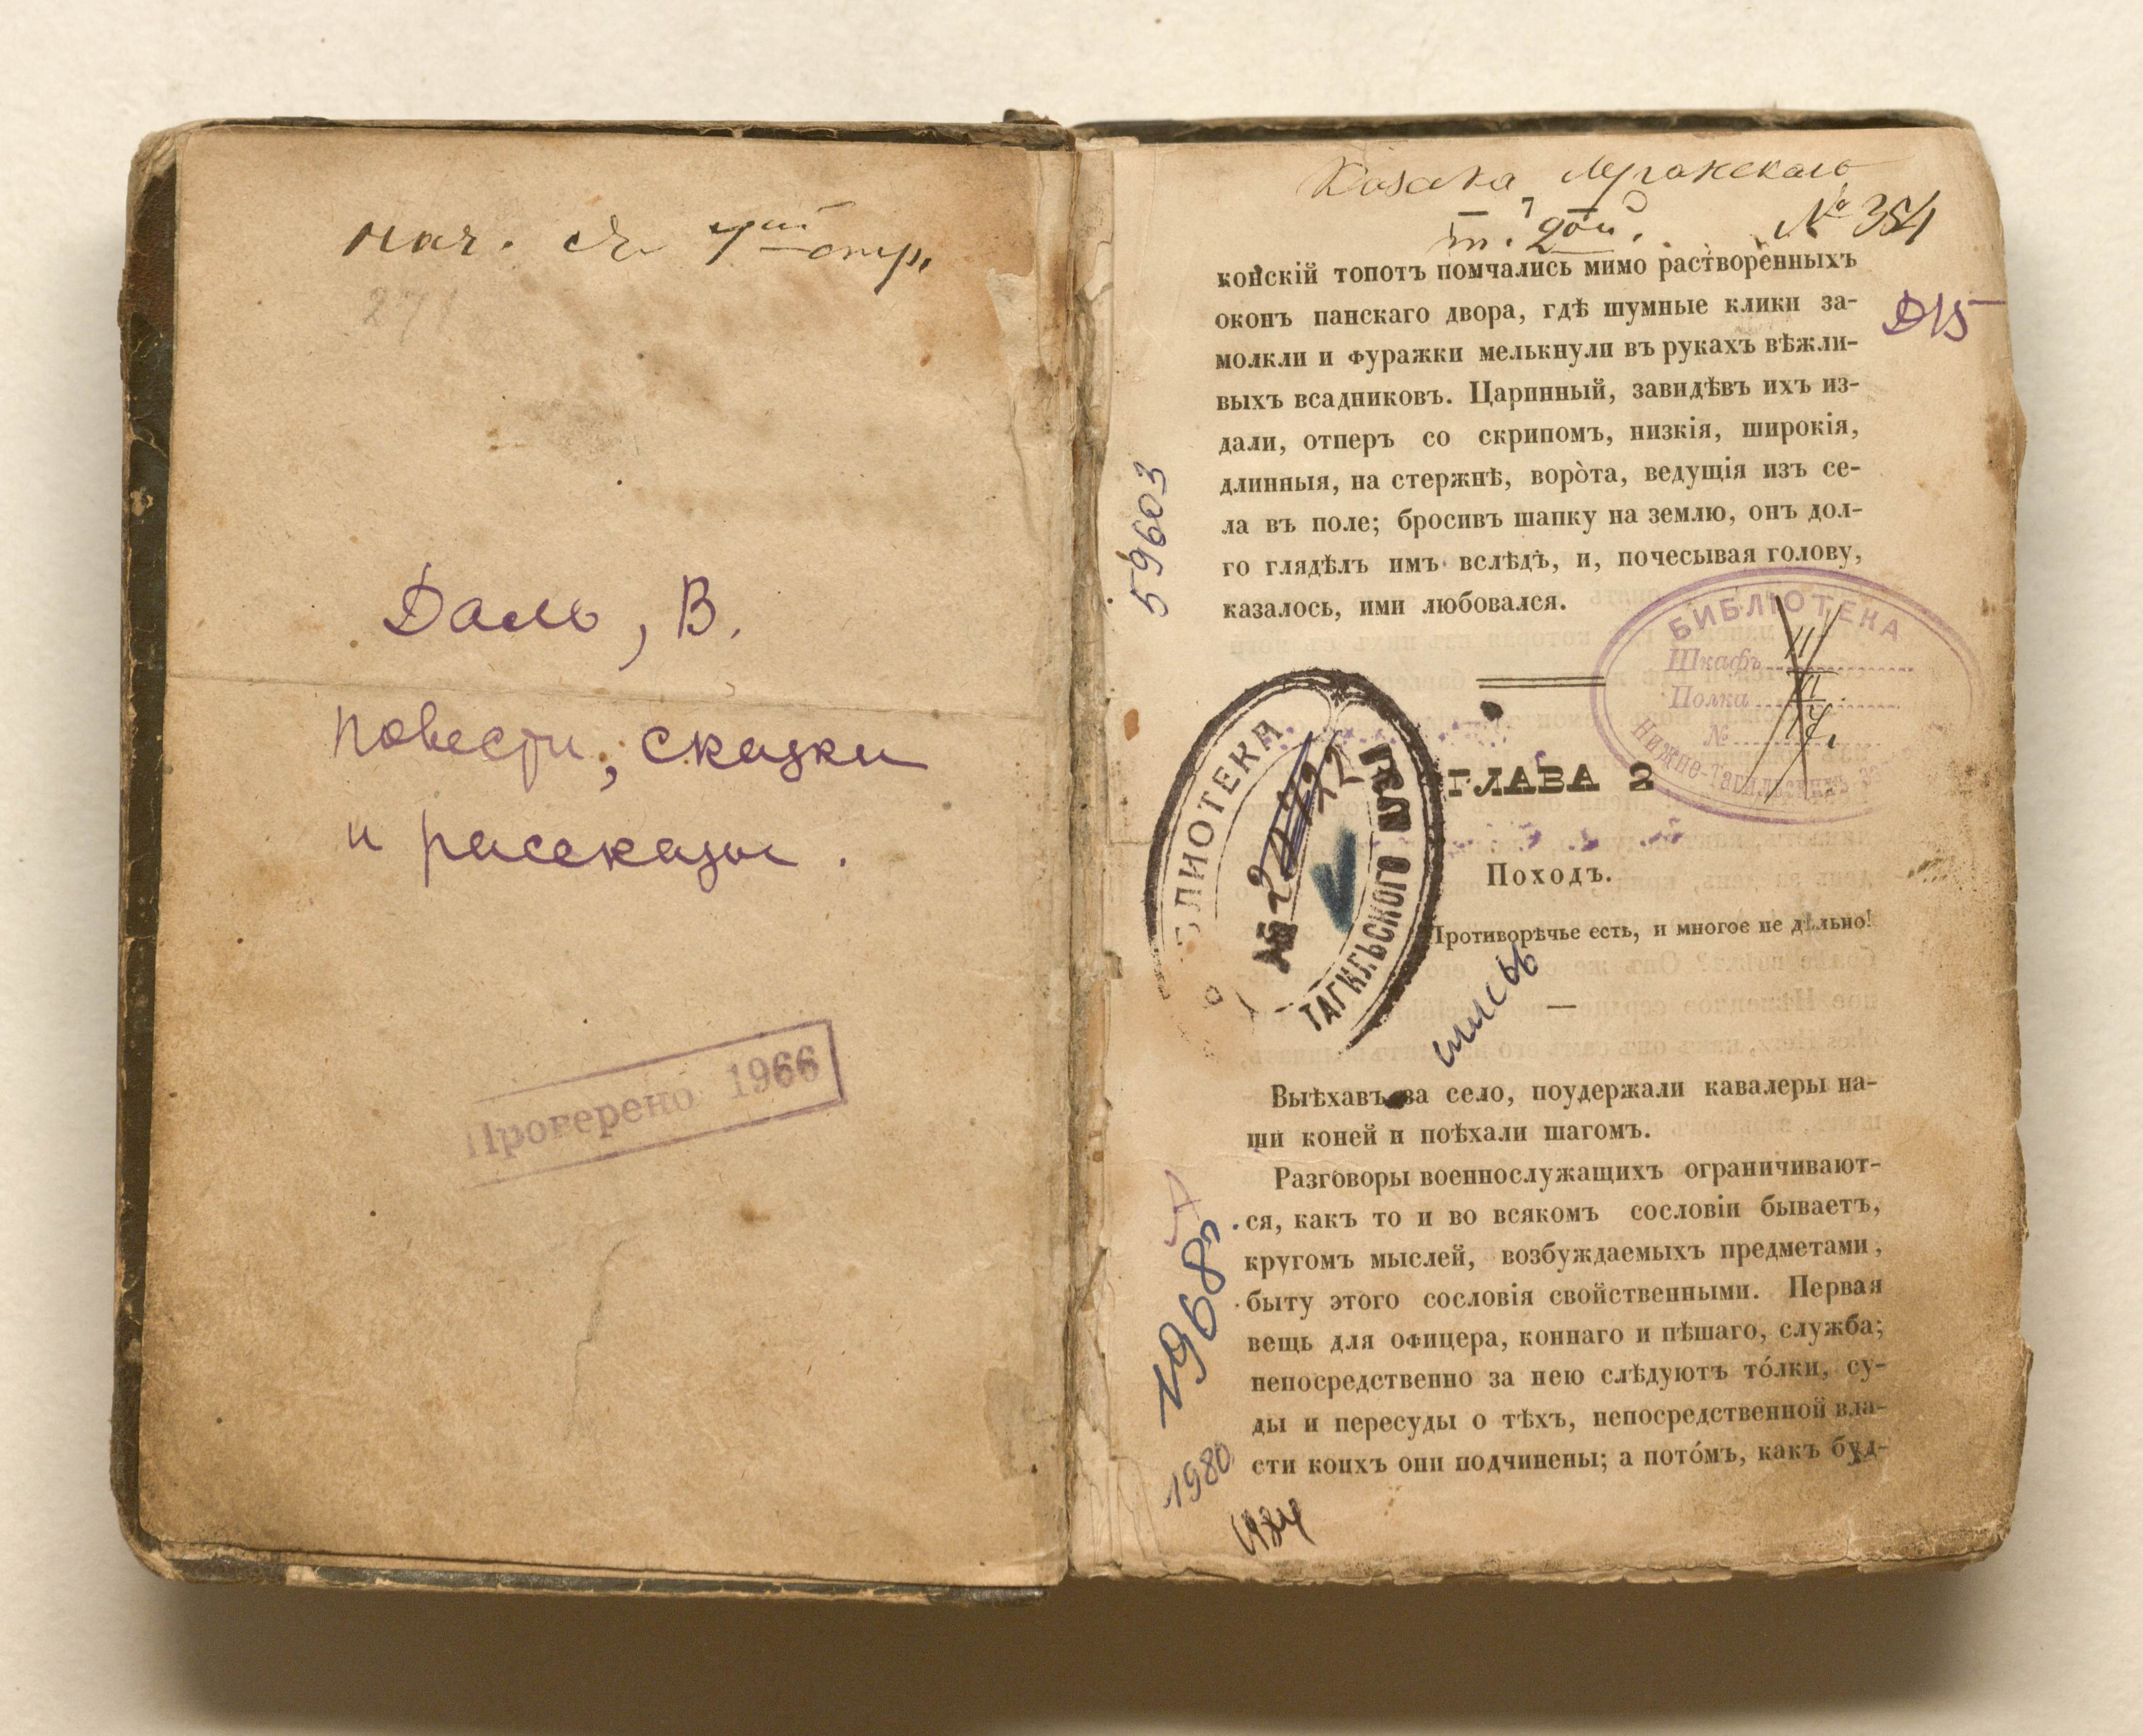 нач. съ 7ой стр.
271
Даль, В.
повести, сказки
и рассказы.
Проверено 1966
Козака Луганскаго
т. 2ой.
№ 354
Д15
конскій топотъ помчались мимо растворенныхъ
оконъ панскаго двора, гдѣ шумные клики за-
молкли и фуражки мелькнули въ рукахъ вѣжли-
выхъ всадниковъ. Царинный, завидѣвъ ихъ из-
дали, отперъ со скрипомъ, низкія, широкія,
длинныя, на стержнѣ, воро̀та, ведущія изъ се-
ла въ поле; бросивъ шапку на землю, онъ дол-
го глядѣлъ имъ вслѣдъ, и, почесывая голову,
казалось, ими любовался.
59603
БИБЛІОТЕКА
Шкафъ III
Полка VI
№ 17.
Нижне-Тагильскихъ за
ЛИОТЕКА
ТАГИЛЬСКОГО
ГЛАВА 2
Походъ.
Противорѣчье есть, и многое не дѣльно!
Выѣхавъ за село, поудержали кавалеры на-
ши коней и поѣхали шагомъ.
Разговоры военнослужащихъ ограничивают-
ся, какъ то и во всякомъ сословіи бываетъ,
кругомъ мыслей, возбуждаемыхъ предметами,
быту этого сословія свойственными. Первая
вещь для офицера, коннаго и пѣшаго, служба;
непосредственно за нею слѣдуютъ то́лки, су-
ды и пересуды о тѣхъ, непосредственной вла-
сти коихъ они подчинены; а пото́мъ, какъ буд-
1968г.
1980
1984